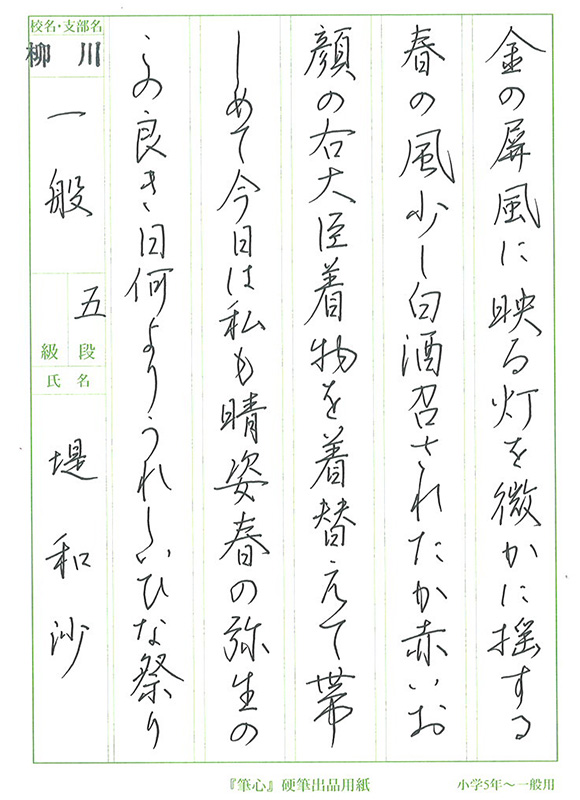 金の屏風に映る灯を微かに揺する
春の風少し白酒召されたか赤いお
顔の右大臣着物を着替えて帯
しめて今日は私も晴姿春の弥生の
この良き日何よりうれしいひな祭り
校名・支部名
柳川
一般
五
級段
氏名
堤和沙
『筆心』硬筆出品用紙
小学5年～一般用